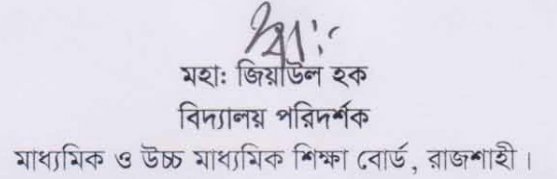 মহা: জিয়াউল হক
বিদ্যালয় পরিদর্শক
মাধ্যমিক ও উচ্চ মাধ্যমিক শিক্ষা বোর্ড, রাজশাহী।